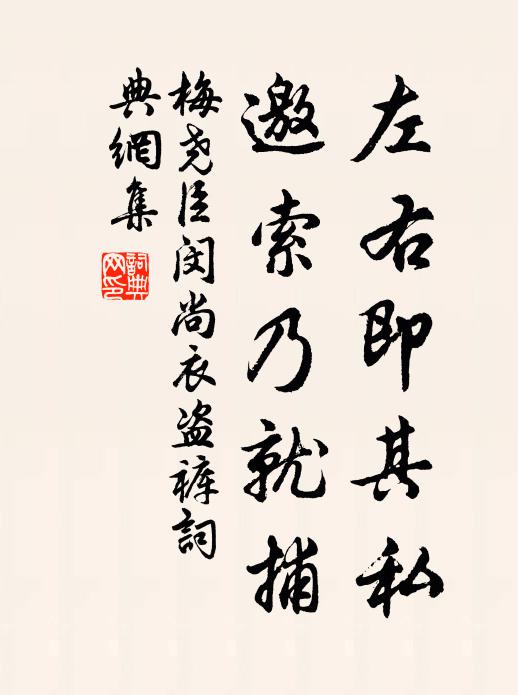 左右即其私
邀索乃就捕
梅尧臣闵尚衣盗裤詞
典網集
詞典网印